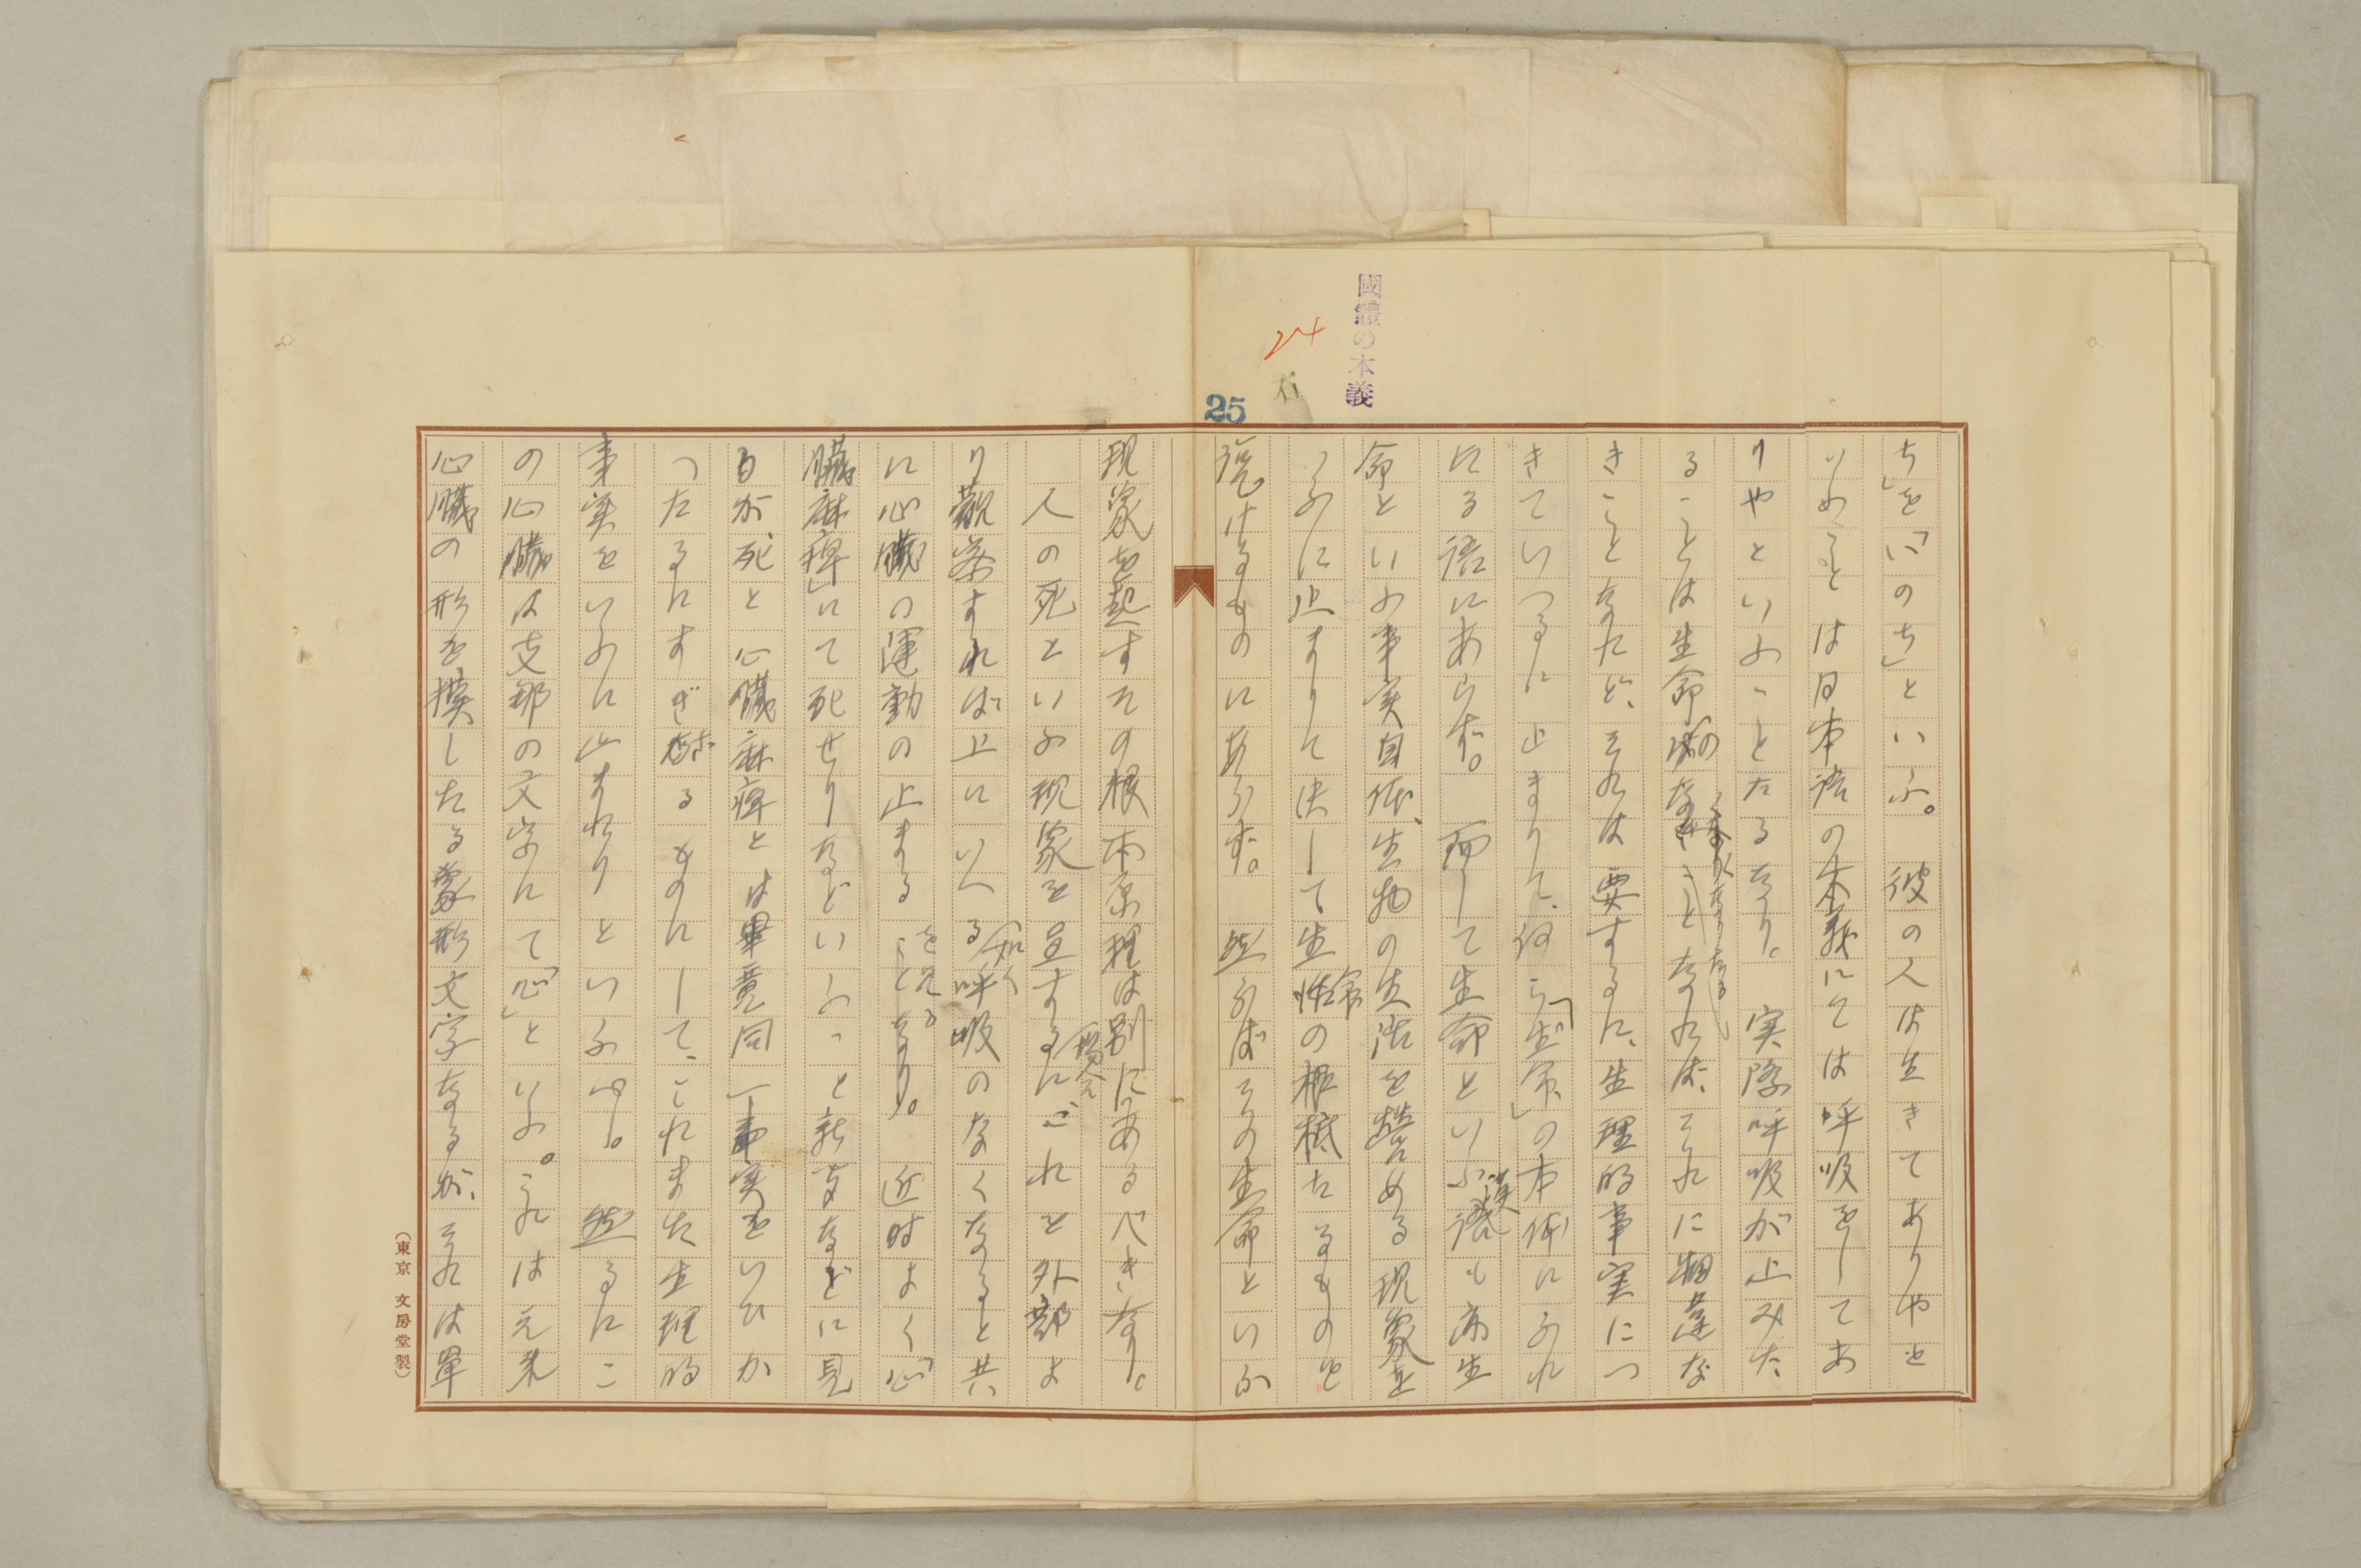 國體の本義
24
石
25
ち」を「いのち」といふ。彼の人は生きてありやと
いふことは日本語の本義にては呼吸をしてあ
りやといふことたるなり。実際呼吸が止みた
ることは生命のなくなりたることなれば、それに相違な
きことなれど、それは要するに、生理的事実につ
きていへるに止まりて、何ら「生命」の本体にふれ
たる語にあらず。而して生命といふ漢語も亦生
命といふ事実自体、生物の生活を営める現象を
いふに止まりて決して生命の根柢たるものを
説けるものにあらず。然らばその生命といふ
現象を起すその根本原理は別にあるべきなり。
人の死といふ現象を呈する場合に、これを外部よ
り観察すれば上にいへる如く呼吸のなくなると共
に心臓の運動の止まるを見るなり。近時よく「心
臓麻痺」にて死せりなどいふこと新聞などに見
るが、死と心臓麻痺とは畢竟同一事実をいひか
つたるにすぎざるものにして、これまた生理的
事実をいふに止まれりといふべし。然るにこ
の心臓は支那の文字にて「心」といふ。これは元来
心臓の形を模したる象形文字なるが、それは単
（東京 文房堂製）